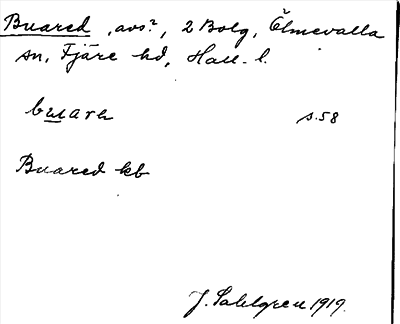 Buared, avs?, 2 Bolg, Ölmevalla
sn, Fjäre hd, Hall. l.
buarh s. 58
Buared kb
J. Sahlgren 1919.